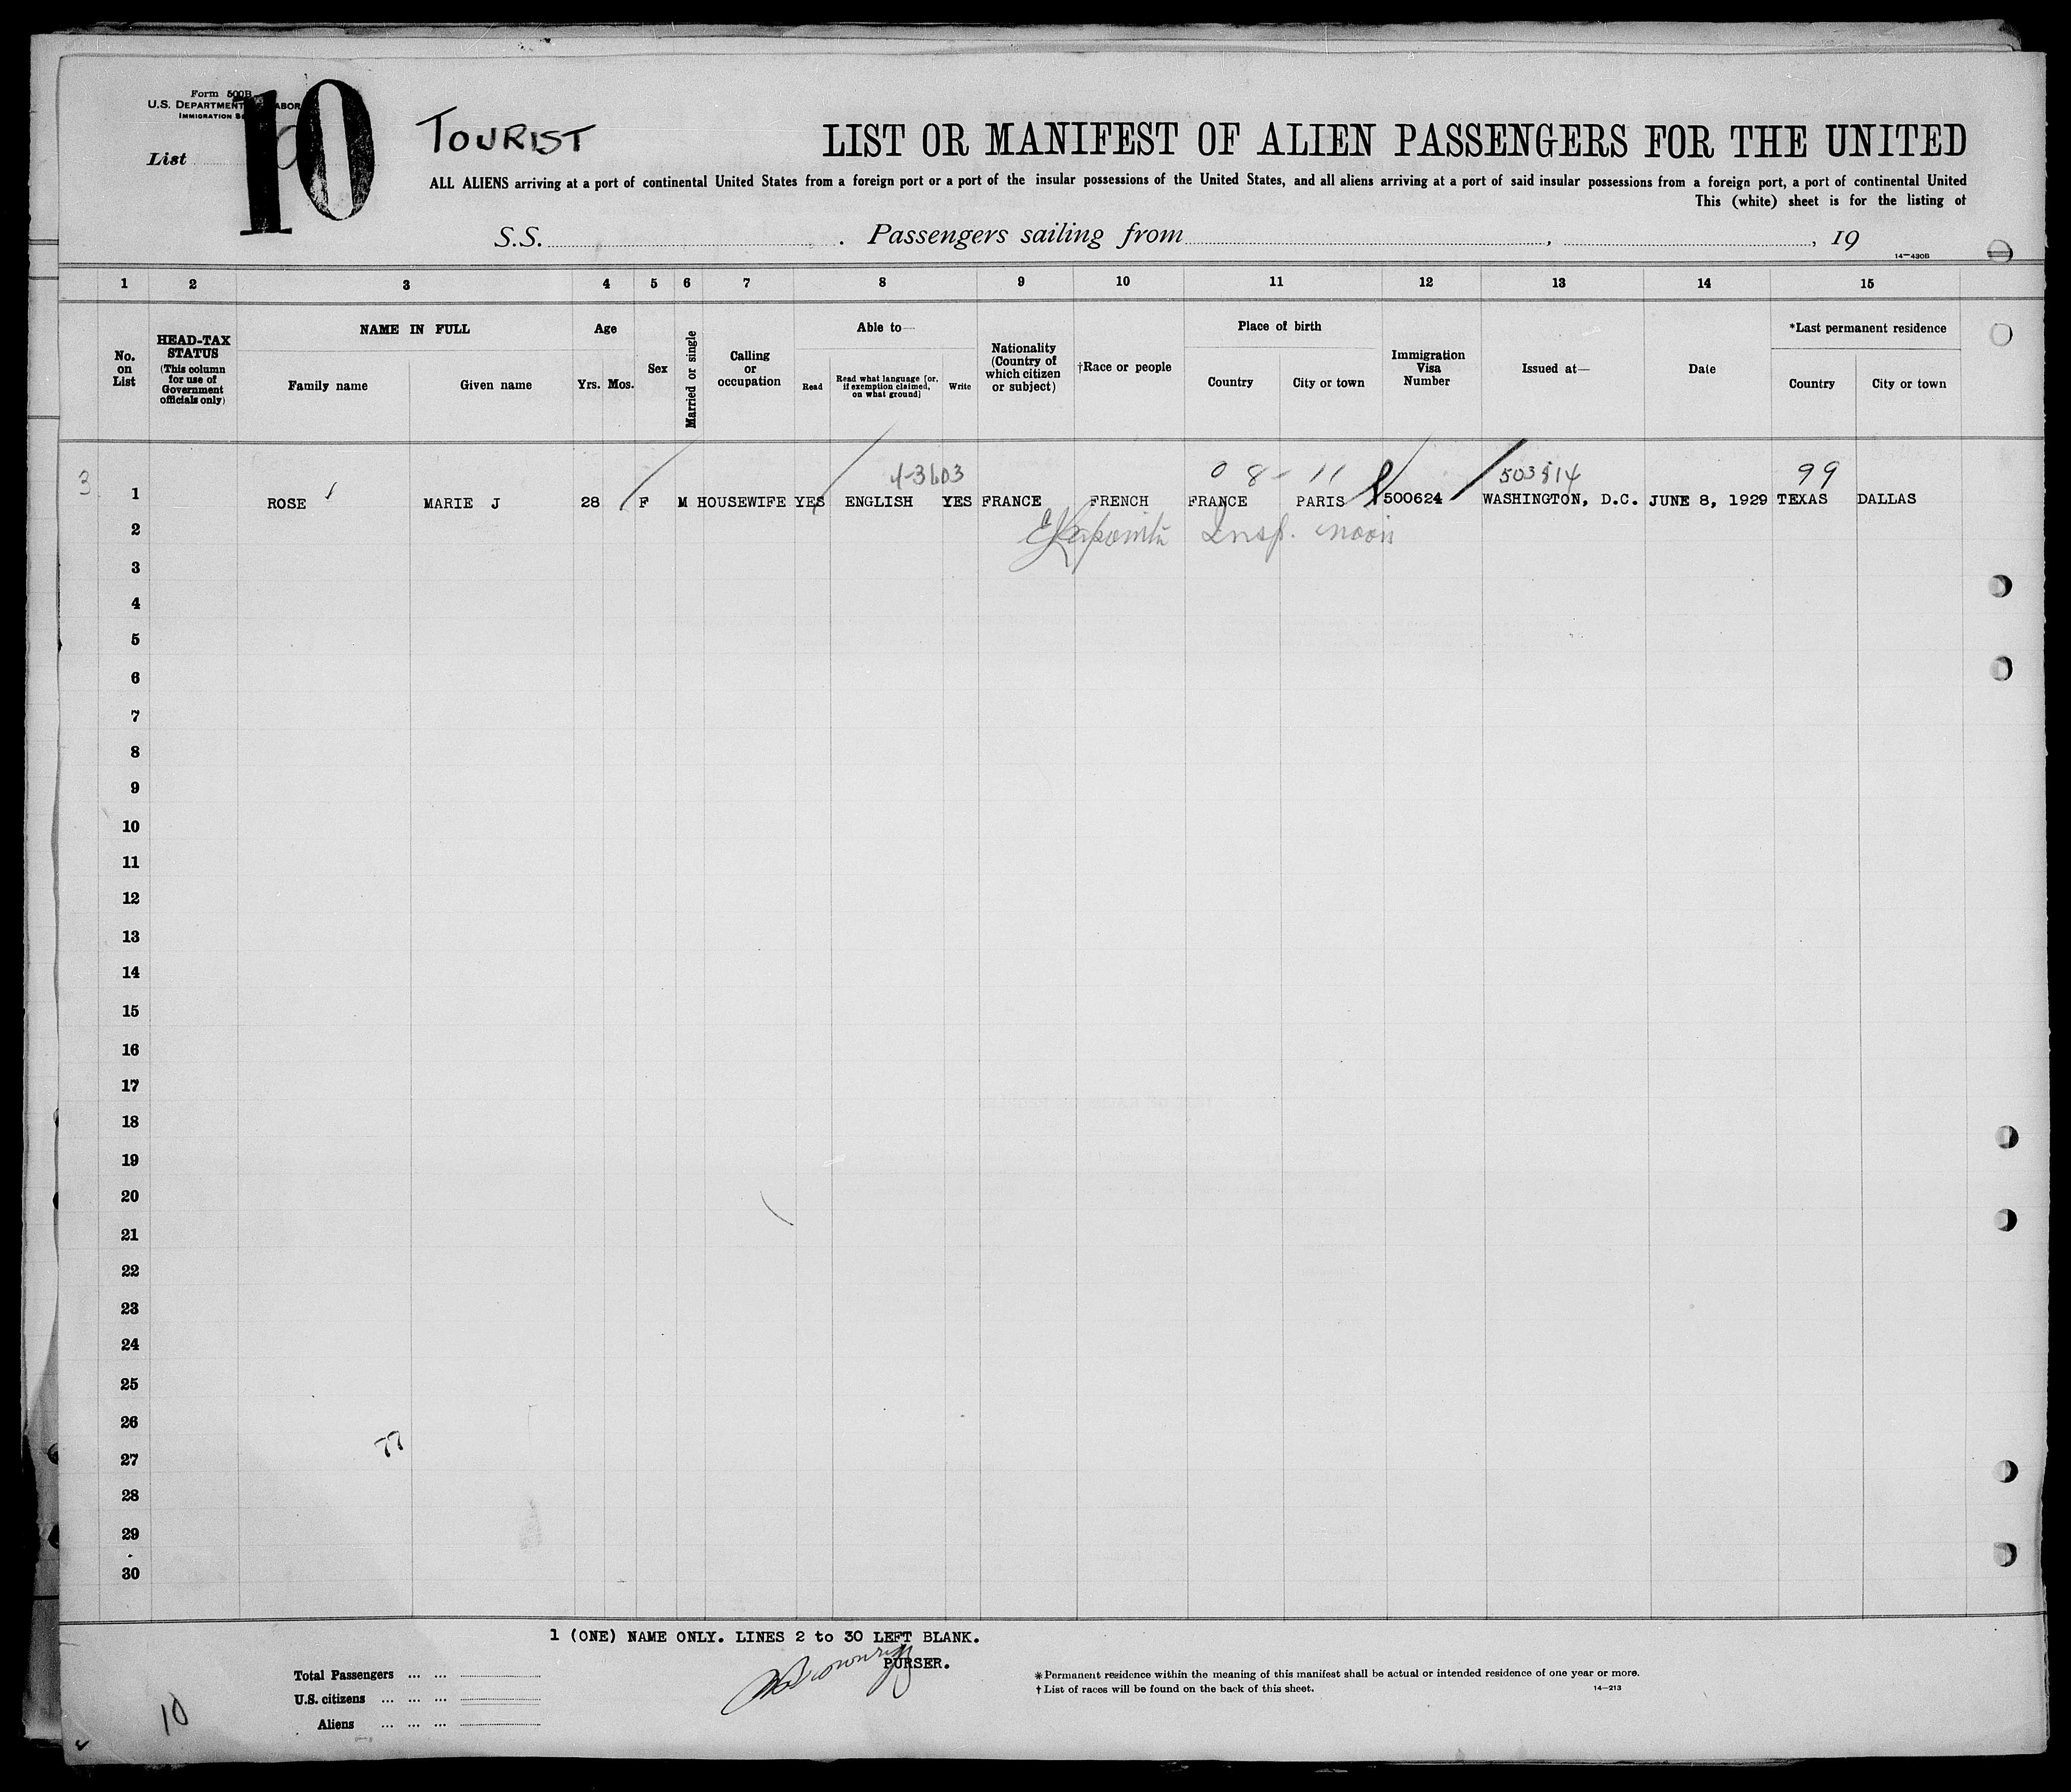 Form 500B
U.S. DEPARTMENT LABOR
IMMIGRATION
List
10
TOURIST
LIST OR MANIFEST OF ALIEN PASSENGERS FOR THE UNITED
ALL ALIENS arriving at a port of continental United States from a foreign port or a port of the insular possessions of the United States, and all aliens arriving at a port of said insular possessions from a foreign port, a port of continental United
This (white) sheet is for the listing of
S.S. . Passengers sailing from , , 19
14—430B
1 2 3 4 5 6 7 8 9 10 11 12 13 14 15
No. on List
HEAD-TAX STATUS (This column for use of Government officials only)
NAME IN FULL
Family name Given name
Age
Yrs. Mos.
Sex
Married or single
Calling or occupation
Able to—
Read
Read what language [or, if exemption claimed, on what ground]
Write
Nationality (Country of which citizen or subject)
†Race or people
Place of birth
Country City or town
Immigration Visa Number
Issued at—
Date
*Last permanent residence
Country City or town
3 4-3603 0 8- 11 503814 99
1 ROSE MARIE J 28 F M HOUSEWIFE YES ENGLISH YES FRANCE FRENCH FRANCE PARIS 500624 WASHINGTON, D.C. JUNE 8, 1929 TEXAS DALLAS
2 Insp.
3
4
5
6
7
8
9
10
11
12
13
14
15
16
17
18
19
20
21
22
23
24
25
26
77
27
28
29
30
1 (ONE) NAME ONLY. LINES 2 to 30 LEFT BLANK.
PURSER.
Total Passengers ... ...
U.S. citizens ... ... ...
Aliens ... ... ...
10
*Permanent residence within the meaning of this manifest shall be actual or intended residence of one year or more.
† List of races will be found on the back of this sheet.
14—213